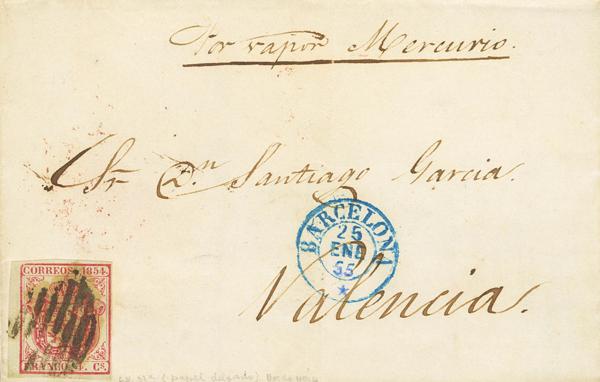 Por vapor Mercurio.
Sr. Dn. Santiago Garcia.
BARCELONA
25
ENE
55
Valencia.
CORREOS 1854.
FRANCO Cs.
(papel delgado)